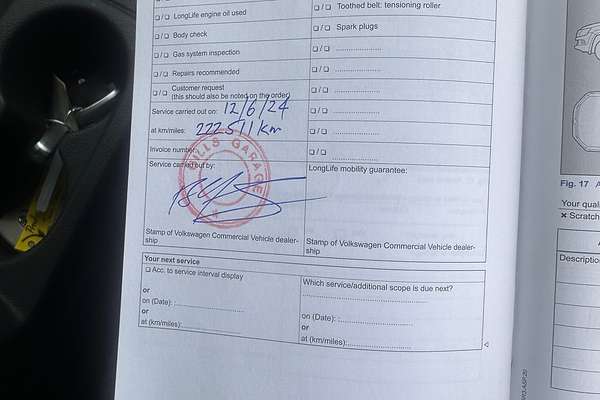 ❏ / ❏ LongLife engine oil used
❏ / ❏ Body check
❏ / ❏ Gas system inspection
❏ / ❏ Repairs recommended
❏ / ❏ Customer request
(this should also be noted on the order)
Service carried out on: 12/6/24
at km/miles: 222511 km
Invoice number:
Service carried out by:
BILLS GARAGE
Stamp of Volkswagen Commercial Vehicle dealer-
ship
❏ / ❏ Toothed belt: tensioning roller
❏ / ❏ Spark plugs
❏ / ❏ ......................
❏ / ❏ ......................
❏ / ❏ ......................
❏ / ❏ ......................
❏ / ❏ ......................
❏ / ❏ ......................
LongLife mobility guarantee:
Stamp of Volkswagen Commercial Vehicle dealer-
ship
Your next service
❏ Acc. to service interval display
or
on (Date): :......................
or
at (km/miles):......................
Which service/additional scope is due next?
......................
on (Date): :......................
or
at (km/miles):......................
Fig. 17 A
Your quali
✕ Scratch
A
Description